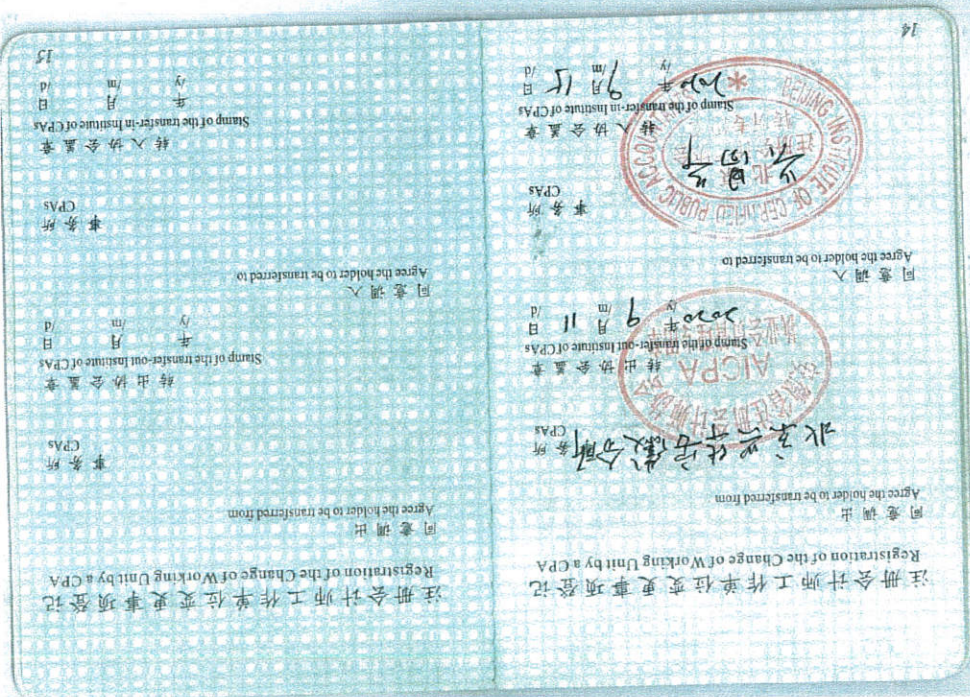 注册会计师工作单位变更事项登记
Registration of the Change of Working Unit by a CPA
同意调出
Agree the holder to be transferred from
安徽分所
事务所
CPAs
安徽省注册会计师协会
AICPA
转出协会盖章
Stamp of the transfer-out Institute of CPAs
2020年 9月 11日
/y /m /d
同意调入
Agree the holder to be transferred to
事务所
CPAs
BEIJING INSTITUTE OF CERTIFIED PUBLIC ACCOUNTANTS
转入协会盖章
Stamp of the transfer-in Institute of CPAs
2020年 9月 15日
/y /m /d
14
注册会计师工作单位变更事项登记
Registration of the Change of Working Unit by a CPA
同意调出
Agree the holder to be transferred from
事务所
CPAs
转出协会盖章
Stamp of the transfer-out Institute of CPAs
年 月 日
/y /m /d
同意调入
Agree the holder to be transferred to
事务所
CPAs
转入协会盖章
Stamp of the transfer-in Institute of CPAs
年 月 日
/y /m /d
15